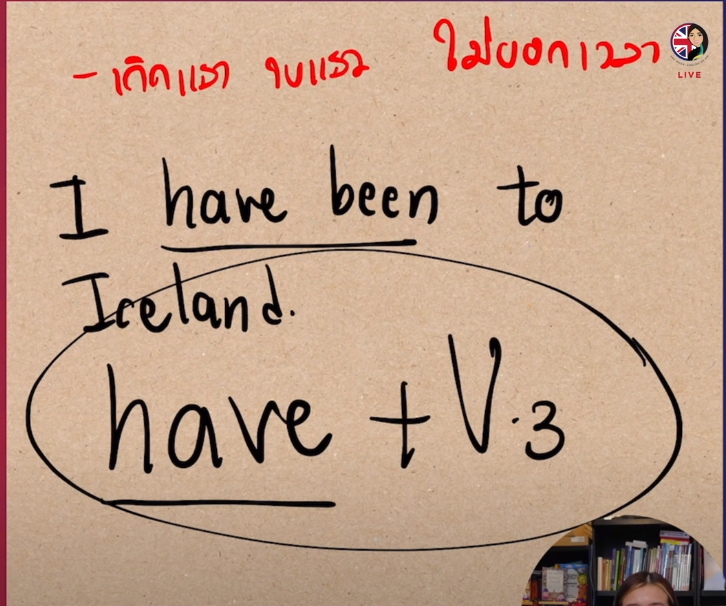 - เกิดแล้ว จบแล้ว ไม่บอกเวลา
LIVE
I have been to
Iceland.
have + V.3